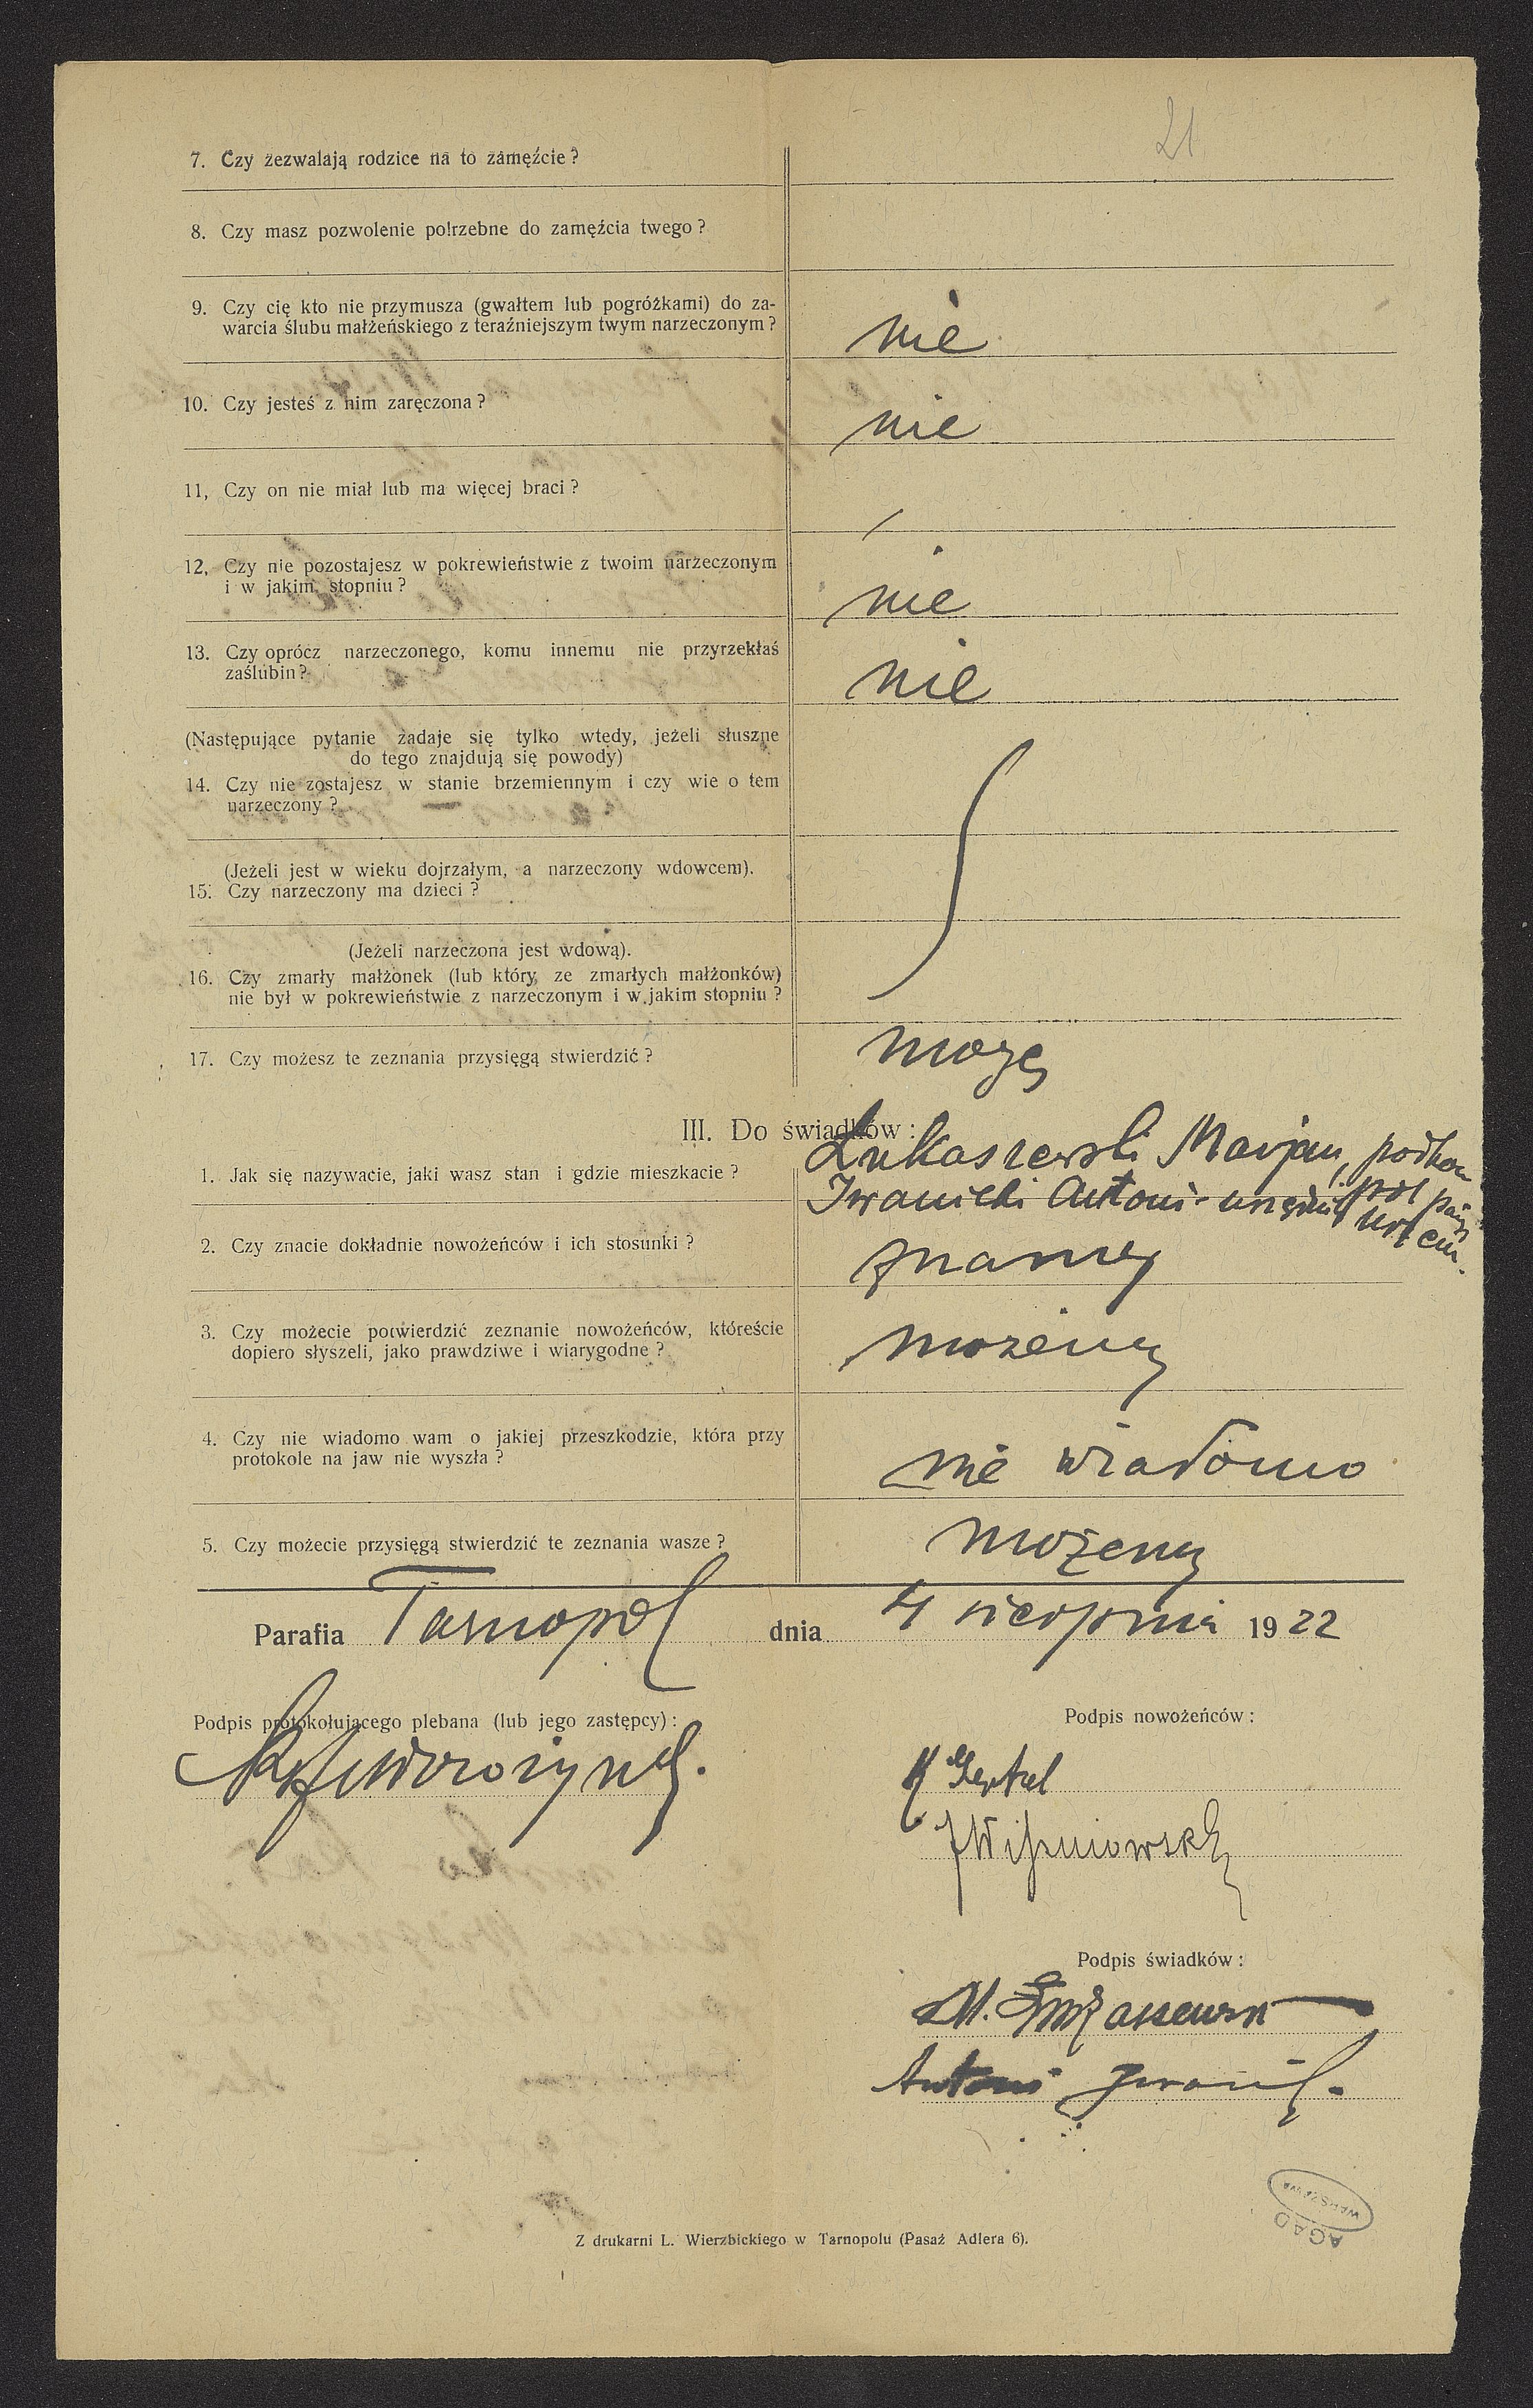 21
7. Czy zezwalają rodzice na to zamęźcie?
8. Czy masz pozwolenie potrzebne do zamęźcia twego?
9. Czy cię kto nie przymusza (gwałtem lub pogróżkami) do za-
warcia ślubu małżeńskiego z teraźniejszym twym narzeczonym?
nie
10. Czy jesteś z nim zaręczona?
nie
11, Czy on nie miał lub ma więcej braci?
12, Czy nie pozostajesz w pokrewieństwie z twoim narzeczonym
i w jakim stopniu?
nie
13. Czy oprócz narzeczonego, komu innemu nie przyrzekłaś
zaślubin?
nie
(Następujące pytanie zadaje się tylko wtedy, jeżeli słuszne
do tego znajdują się powody)
14. Czy nie zostajesz w stanie brzemiennym i czy wie o tem
narzeczony?
(Jeżeli jest w wieku dojrzałym, a narzeczony wdowcem).
15. Czy narzeczony ma dzieci?
(Jeżeli narzeczona jest wdową).
16. Czy zmarły małżonek (lub który ze zmarłych małżonków)
nie był w pokrewieństwie z narzeczonym i w jakim stopniu?
17. Czy możesz te zeznania przysięgą stwierdzić?
mogę
III. Do świadków:
Łukaszewski Marjan,
1. Jak się nazywacie, jaki wasz stan i gdzie mieszkacie?
Iwanicki Antoni
2. Czy znacie dokładnie nowożeńców i ich stosunki?
znamy
3. Czy możecie potwierdzić zeznanie nowożeńców, któreście
dopiero słyszeli, jako prawdziwe i wiarygodne?
możemy
4. Czy nie wiadomo wam o jakiej przeszkodzie, która przy
protokole na jaw nie wyszła?
nie wiadomo
5. Czy możecie przysięgą stwierdzić te zeznania wasze?
możemy
Parafia Tarnopol dnia 4 sierpnia 1922
Podpis protokołującego plebana (lub jego zastępcy):
Podpis nowożeńców:
JWiszniowska
Podpis świadków:
M. Łukaszewski
Antoni Iwanicki
AGAD
WARSZAWA
Z drukarni L. Wierzbickiego w Tarnopolu (Pasaż Adlera 6).